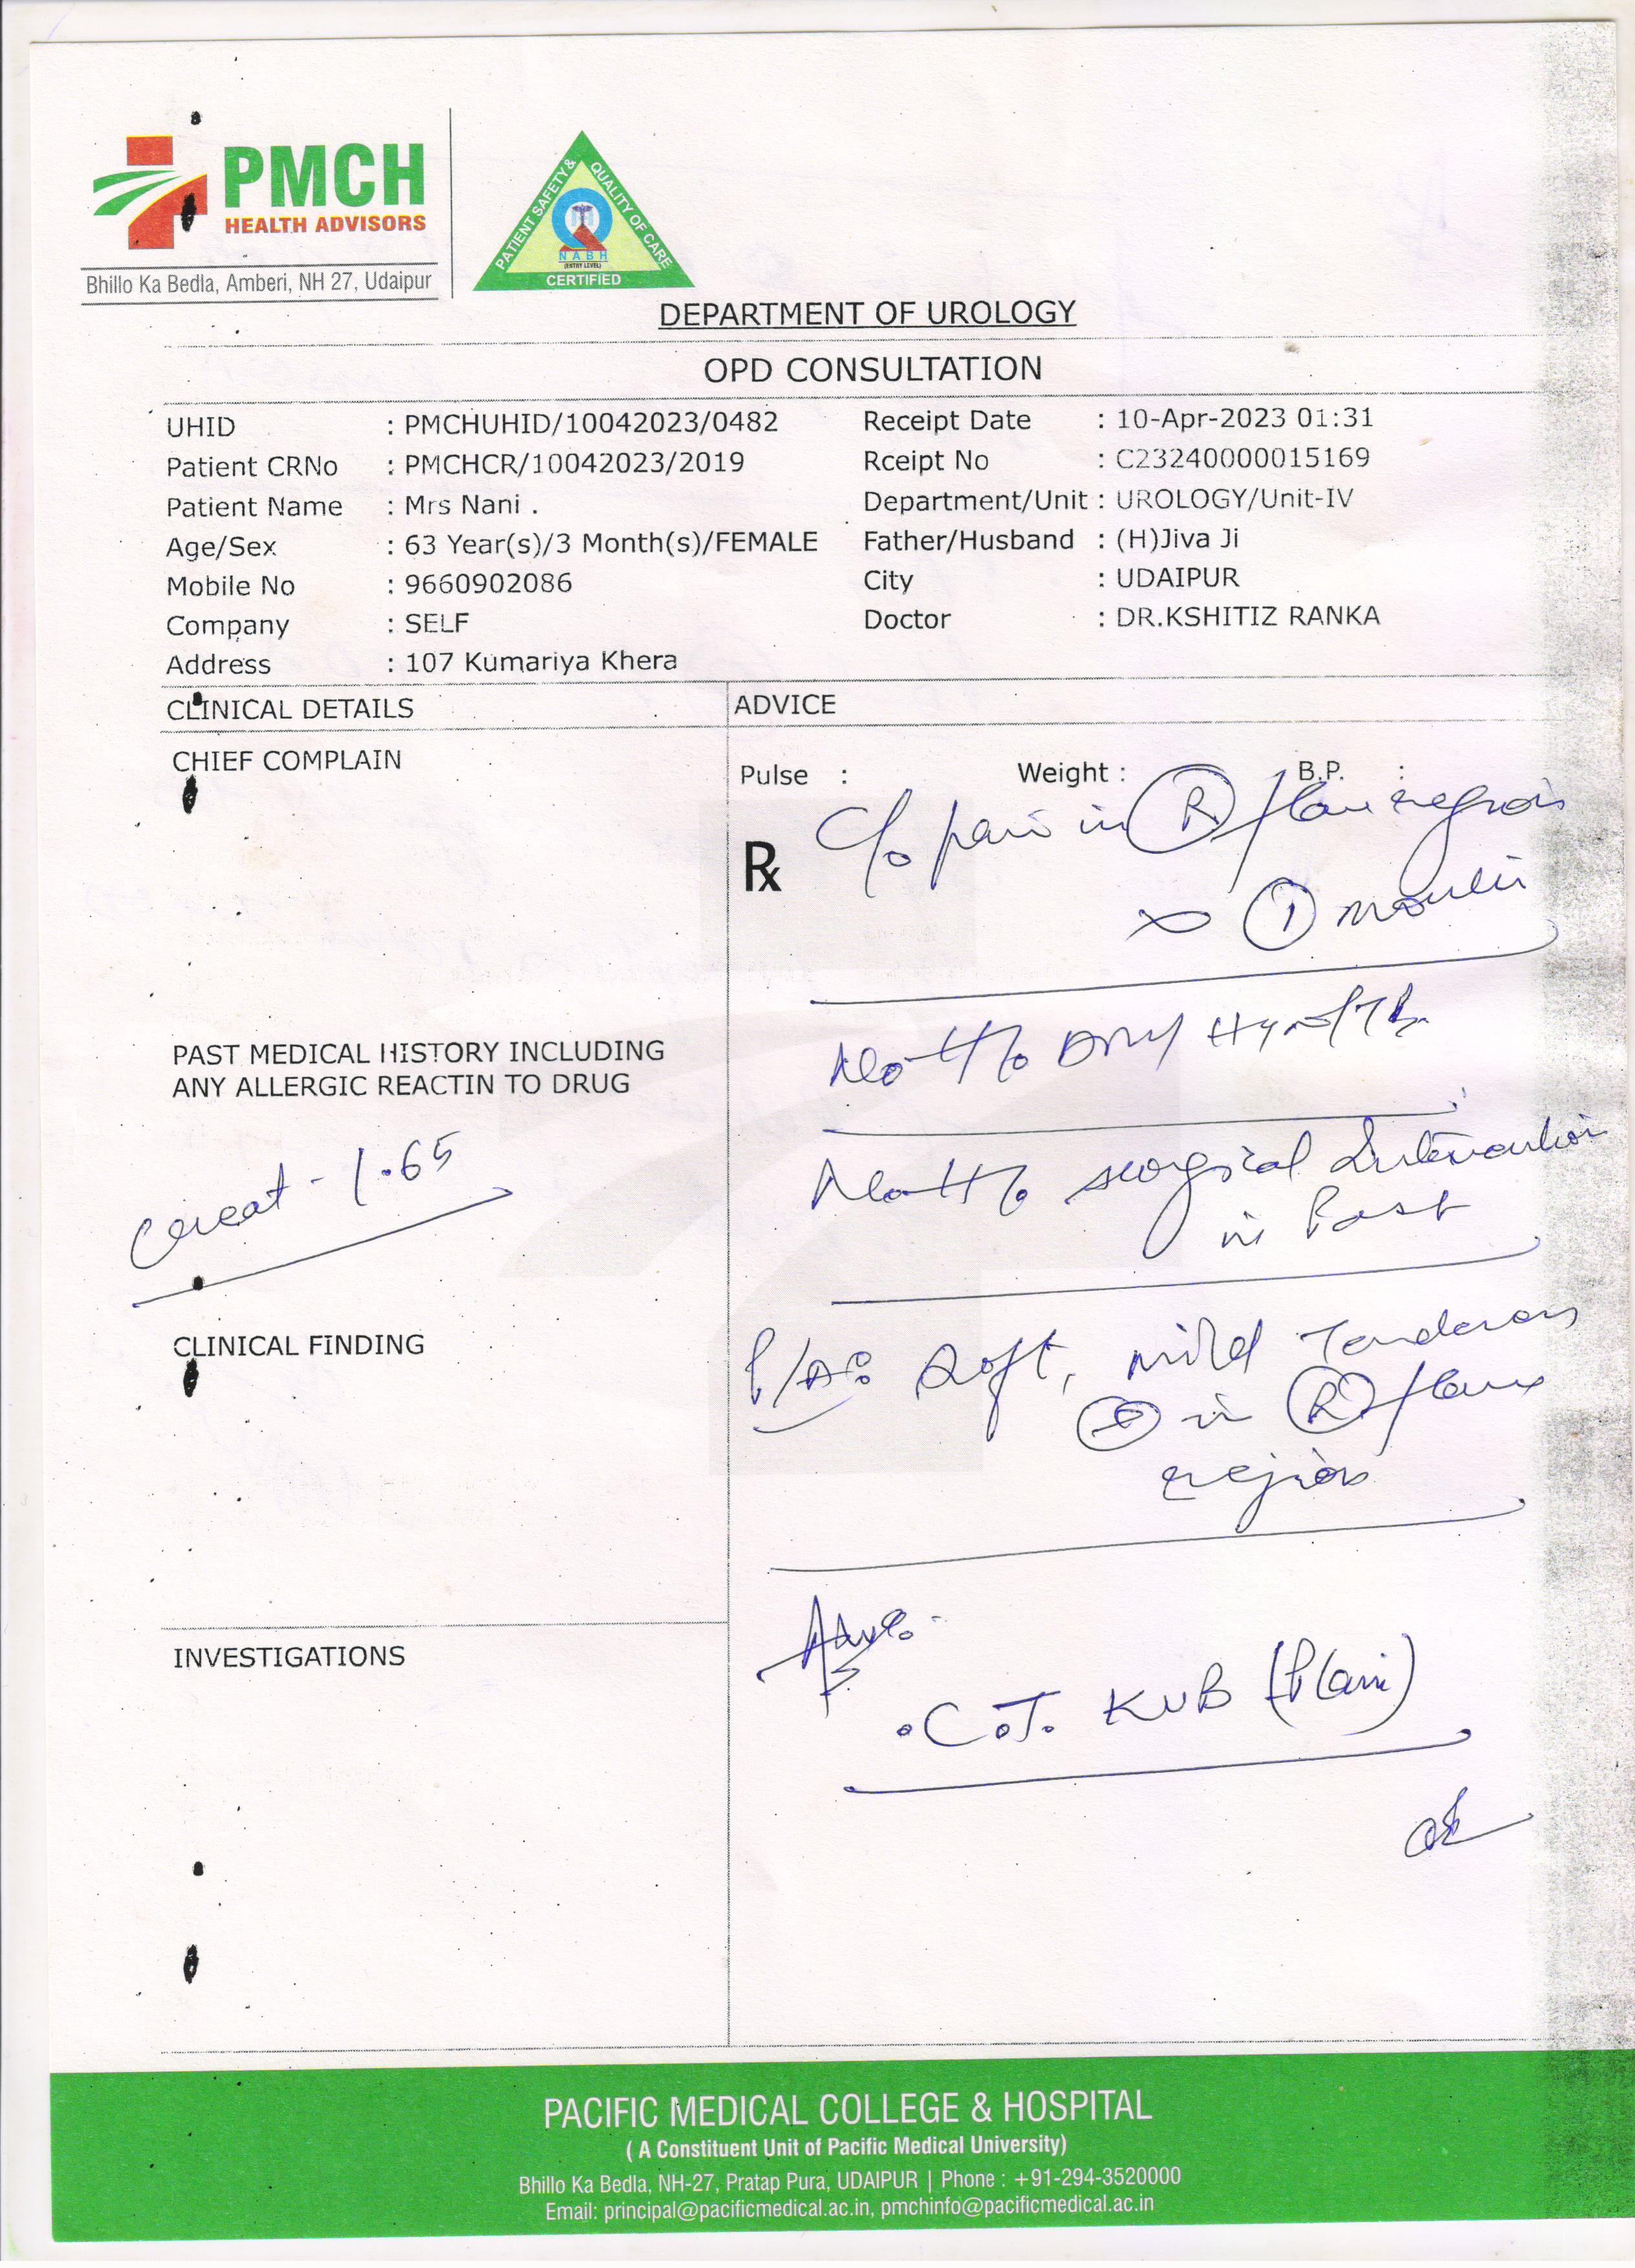 PMCH
HEALTH ADVISORS
Bhillo Ka Bedla, Amberi, NH 27, Udaipur
PATIENT SAFETY & QUALITY OF CARE
NABH
(ENTRY LEVEL)
CERTIFIED
DEPARTMENT OF UROLOGY
OPD CONSULTATION
UHID : PMCHUHID/10042023/0482 Receipt Date : 10-Apr-2023 01:31
Patient CRNo : PMCHCR/10042023/2019 Rceipt No : C23240000015169
Patient Name : Mrs Nani . Department/Unit : UROLOGY/Unit-IV
Age/Sex : 63 Year(s)/3 Month(s)/FEMALE Father/Husband : (H)Jiva Ji
Mobile No : 9660902086 City : UDAIPUR
Company : SELF Doctor : DR.KSHITIZ RANKA
Address : 107 Kumariya Khera
CLINICAL DETAILS ADVICE
CHIEF COMPLAIN
Pulse : Weight : B.P. :
Rx c/o pain in (R) flank region
x (1) month
PAST MEDICAL HISTORY INCLUDING
ANY ALLERGIC REACTIN TO DRUG
No H/o DM/ Hyn/TB
creat - 1.65
No H/o surgical Intervention
in Past
CLINICAL FINDING
P/A: Soft, mild Tenderness
(+) in (R) flank
region
INVESTIGATIONS
Adv:-
.C.T. KUB (Plain)
PACIFIC MEDICAL COLLEGE & HOSPITAL
( A Constituent Unit of Pacific Medical University)
Bhillo Ka Bedla, NH-27, Pratap Pura, UDAIPUR | Phone : +91-294-3520000
Email: principal@pacificmedical.ac.in, pmchinfo@pacificmedical.ac.in